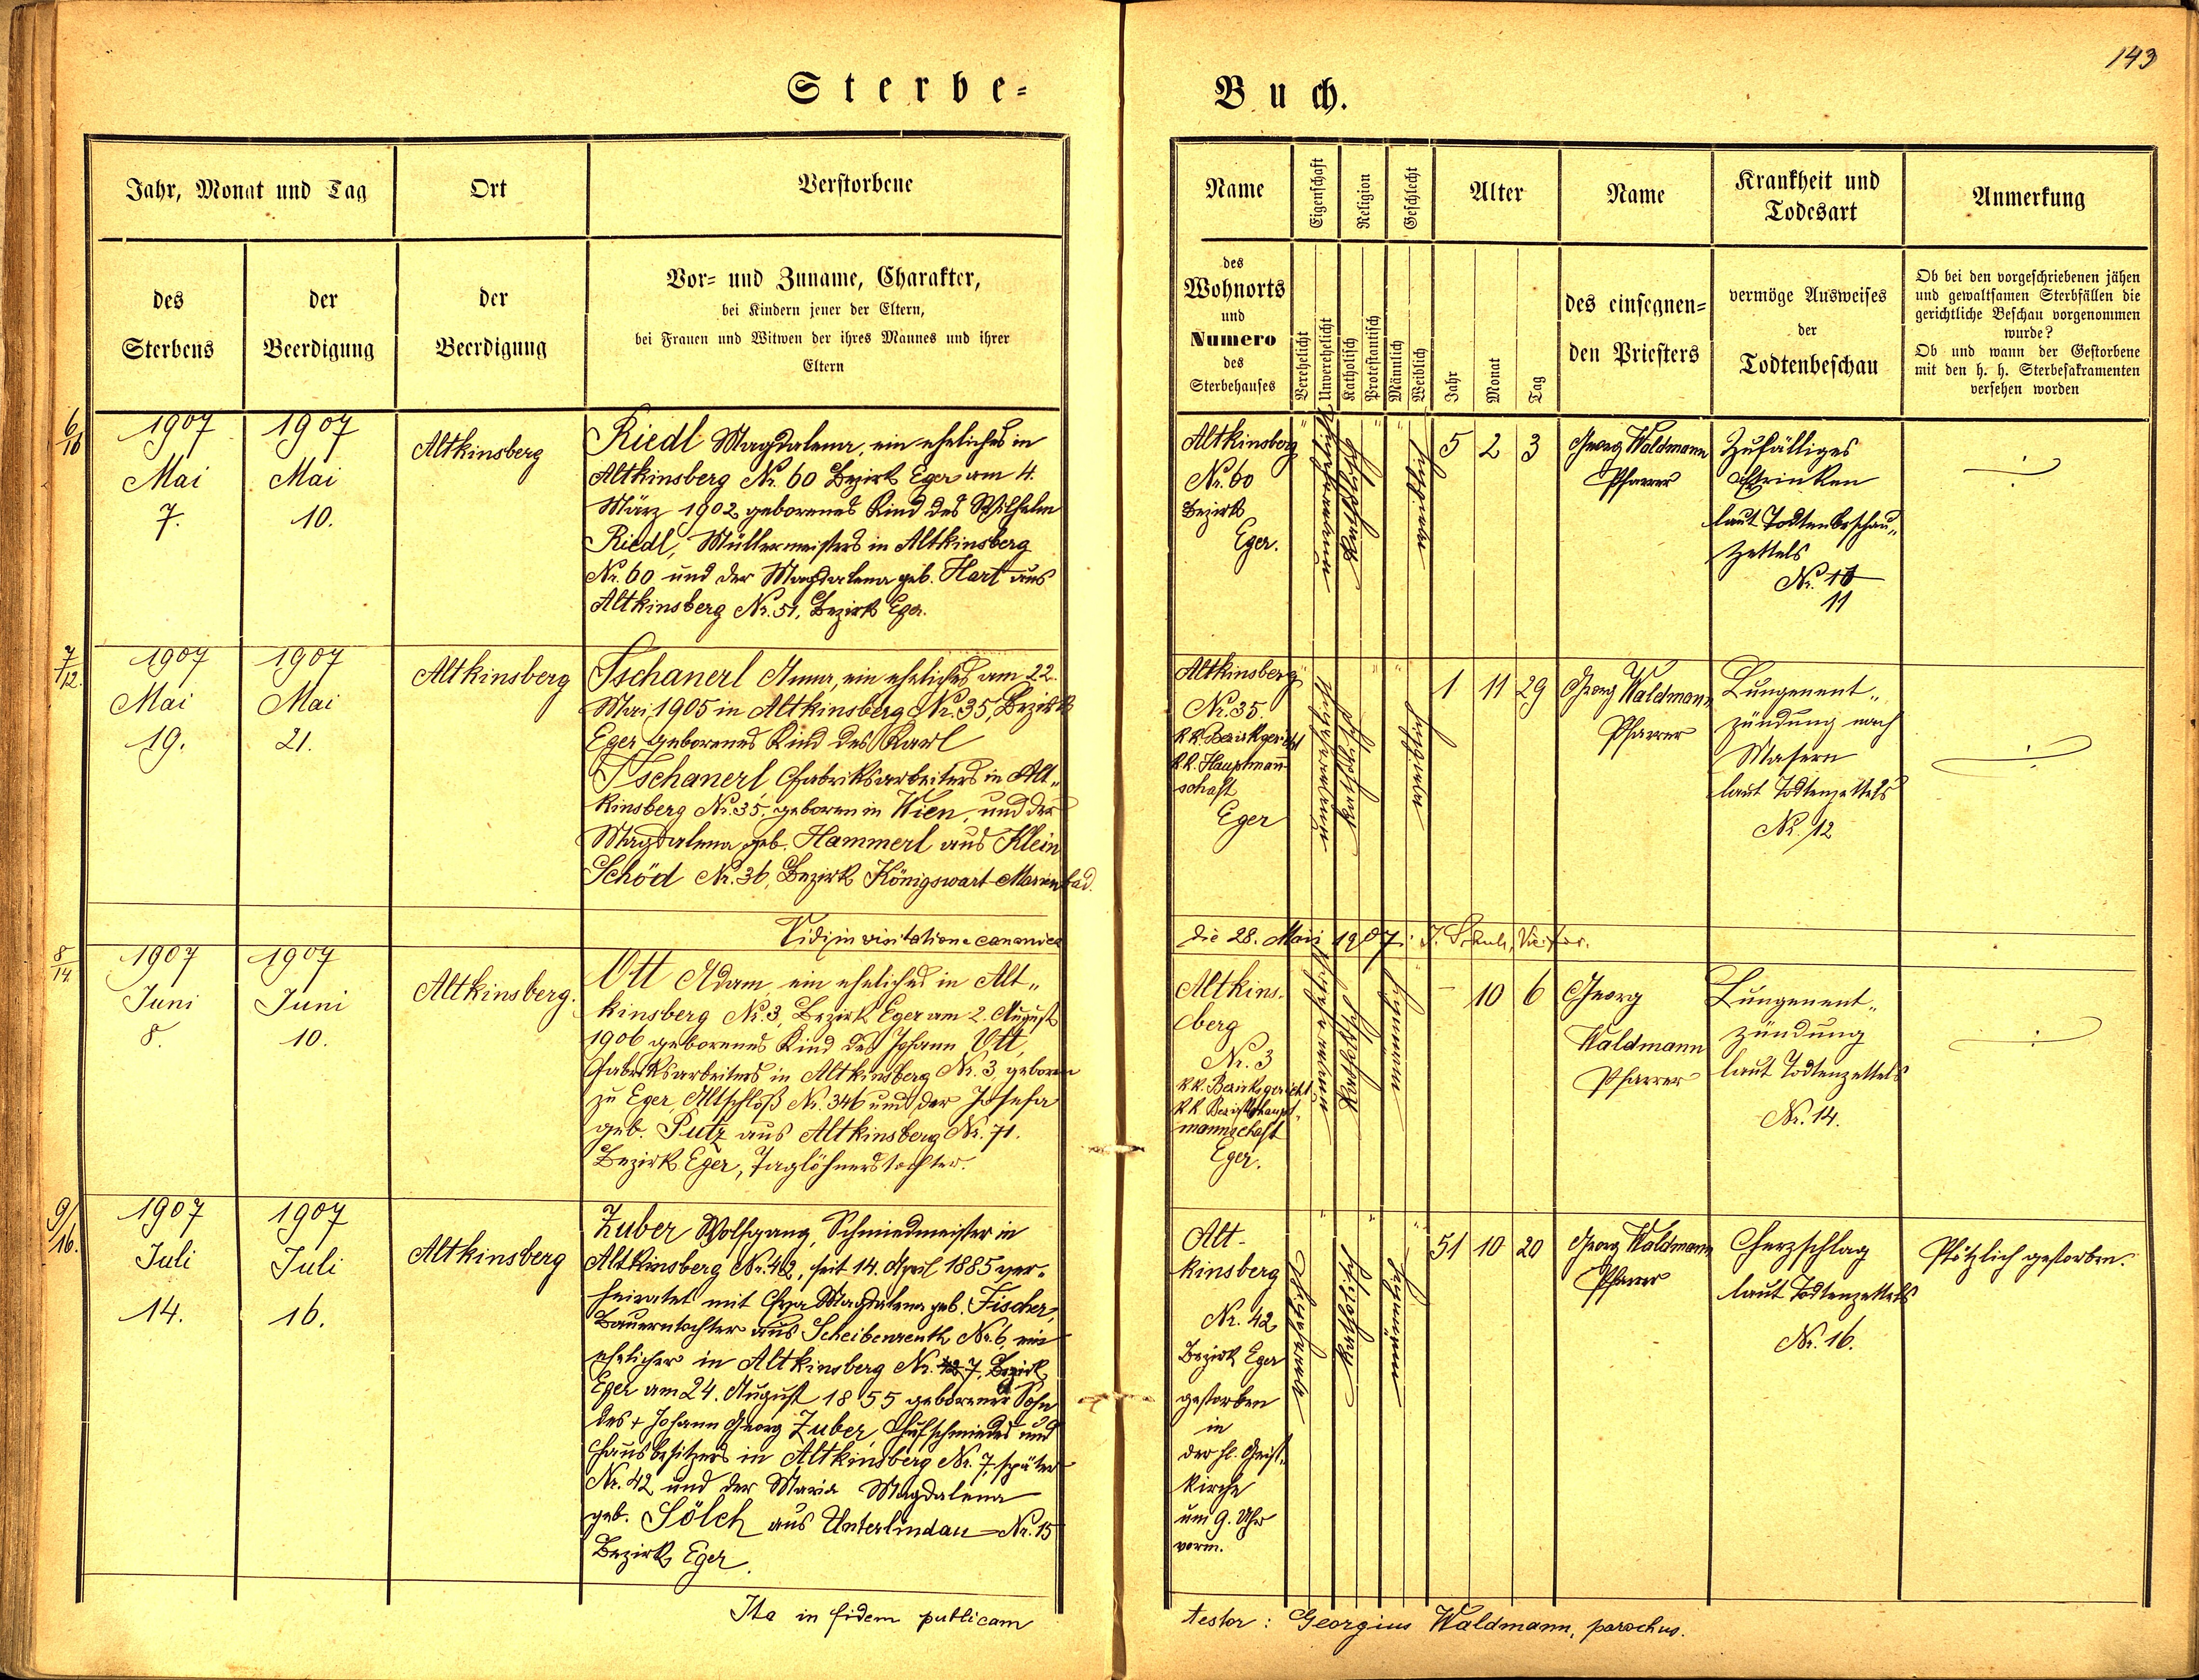 143
Sterbe-
Buch.
Jahr, Monat und Tag
Ort
Verstorbene
des
Sterbens
der
Beerdigung
der
Beerdigung
Vor- und Zuname, Charakter,
bei Kindern jener der Eltern,
bei Frauen und Witwen der ihres Mannes und ihrer
Eltern
Name
Eigenschaft
Religion
Geschlecht
Alter
Name
Krankheit und
Todesart
Anmerkung
des
Wohnorts
und
Numero
des
Sterbehauses
Verehelicht
Unverehelicht
Katholisch
Protestantisch
Männlich
Weiblich
Jahr
Monat
Tag
des einsegnen-
den Priesters
vermöge Ausweises
der
Todtenbeschau
Ob bei den vorgeschriebenen jähen
und gewaltsamen Sterbfällen die
gerichtliche Beschau vorgenommen
wurde?
Ob und wann der Gestorbene
mit den h. h. Sterbesakramenten
versehen worden
6/10
1907
Mai
7.
1907
Mai
10.
Altkinsberg
Riedl Magdalena, ein eheliches in
Altkinsberg Nr. 60 Bezirk Eger am 4.
März 1902 geborenes Kind des Wilhelm
Riedl, Müllermeisters in Altkinsberg
Nr. 60 und der Magdalena geb. Hart aus
Altkinsberg Nr. 51, Bezirk Eger.
Altkinsberg
Nr. 60
Bezirk
Eger.
unverehelicht
katholisch
weiblich
5 2 3
Georg Waldmann
Pfarrer
Zufälliges
Ertrinken
laut Todtenbeschau„
zettels
Nr. 10
11
7/12.
1907
Mai
19.
1907
Mai
21.
Altkinsberg
Tschanerl Anna, ein eheliches am 22.
Mai 1905 in Altkinsberg Nr. 35, Bezirk
Eger geborenes Kind des Karl
Tschanerl Fabriksarbeiters in Alt„
kinsberg Nr. 35, geboren in Wien, und der
Magdalena geb. Hammerl aus Klein
Schöd Nr. 36, Bezirk Königswart-Marienbad.
Altkinsberg
Nr. 35.
k.k. Bezirkgericht
k.k. Hauptmann
schaft
Eger
unverehelicht
katholisch
weiblich
1 11 29
Georg Waldmann
Pfarrer
Lungenent„
zündung nach
Masern
laut Todtenzettels
Nr. 12
Vidi in visitatione canonica
die 28. Maii 1907.
8/14
1907
Juni
8.
1907
Juni
10.
Altkinsberg.
Ott Adam, ein eheliches in Alt„
kinsberg Nr. 3, Bezirk Eger am 2. August
1906 geborenes Kind des Johann Ott,
Fabriksarbeiters in Altkinsberg Nr. 3 geboren
zu Eger, Altschloß Nr. 346 und der Josefa
geb. Putz aus Altkinsberg Nr. 71.
Bezirk Eger, Taglöhnerstochter.
Altkins-
berg
Nr. 3
k.k. Bezirksgericht
k.k. Bezirkshaupt-
mannschaft
Eger.
unverehelicht
katholisch
männlich
– 10 6
Georg
Waldmann
Pfarrer
Lungenent„
zündung
laut Todtenzettels
Nr. 14.
9/16.
1907
Juli
14.
1907
Juli
16.
Altkinsberg
Zuber Wolfgang, Schmiedmeister in
Altkinsberg Nr. 42, seit 14. April 1885 ver-
heiratet mit Eva Magdalena geb. Fischer,
Bauerntochter aus Scheibenreuth Nr. 6, ein
ehelicher in Altkinsberg Nr. 42 7, Bezirk
Eger am 24. August 1855 geborener Sohn
des + Johann Georg Zuber, Hufschmiedes und
Hausbesitzers in Altkinsberg Nr. 7, später
Nr. 42 und der Maria Magdalena
geb. Sölch aus Unterlindau Nr. 15
Bezirk Eger.
Alt-
kinsberg
Nr. 42
Bezirk Eger
gestorben
in
der hl. Geist„
kirche
um 9. Uhr
vorm.
verehelicht
katholisch
männlich
51 10 20
Georg Waldmann
Pfarrer
Herzschlag
laut Todtenzettels
Nr. 16.
Plötzlich gestorben.
Ita in fidem publicam
testor: Georgius Waldmann, parochus.